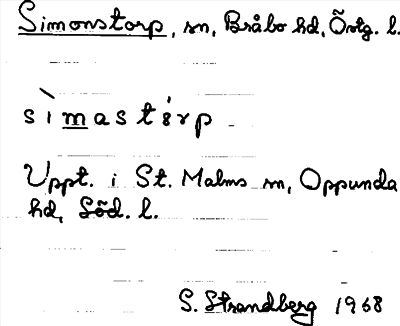 Simonstorp, sn, Bråbo hd, Östg. l.
sìmastórp
Uppt. i St. Malms sn, Oppunda
hd, Söd. l.
S. Strandberg 1968